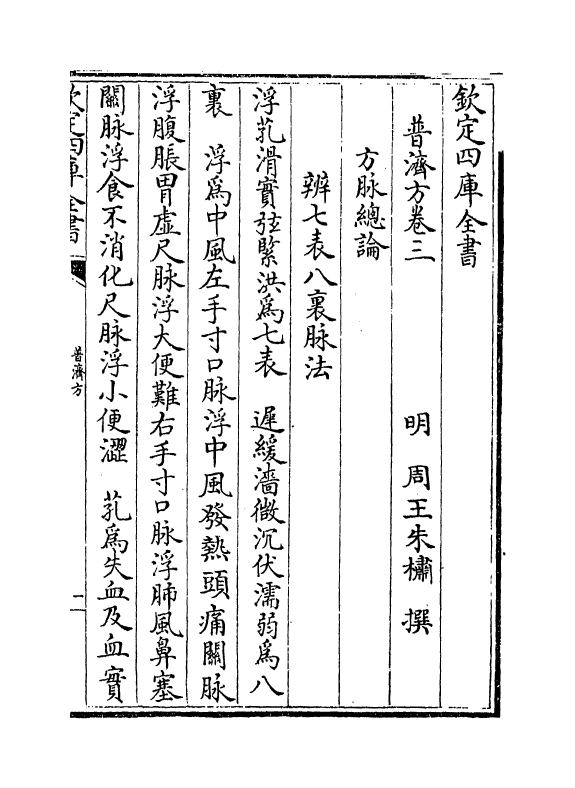 欽定四庫全書
普濟方卷三
明　周王朱橚　撰
方脉總論
辨七表八裏脉法
浮芤滑實弦緊洪爲七表　遲緩濇微沉伏濡弱爲八
裏　浮爲中風左手寸口脉浮中風發熱頭痛關脉
浮腹脹胃虛尺脉浮大便難右手寸口脉浮肺風鼻塞
關脉浮食不消化尺脉浮小便澀　芤爲失血及血實
欽定四庫全書
普濟方
一